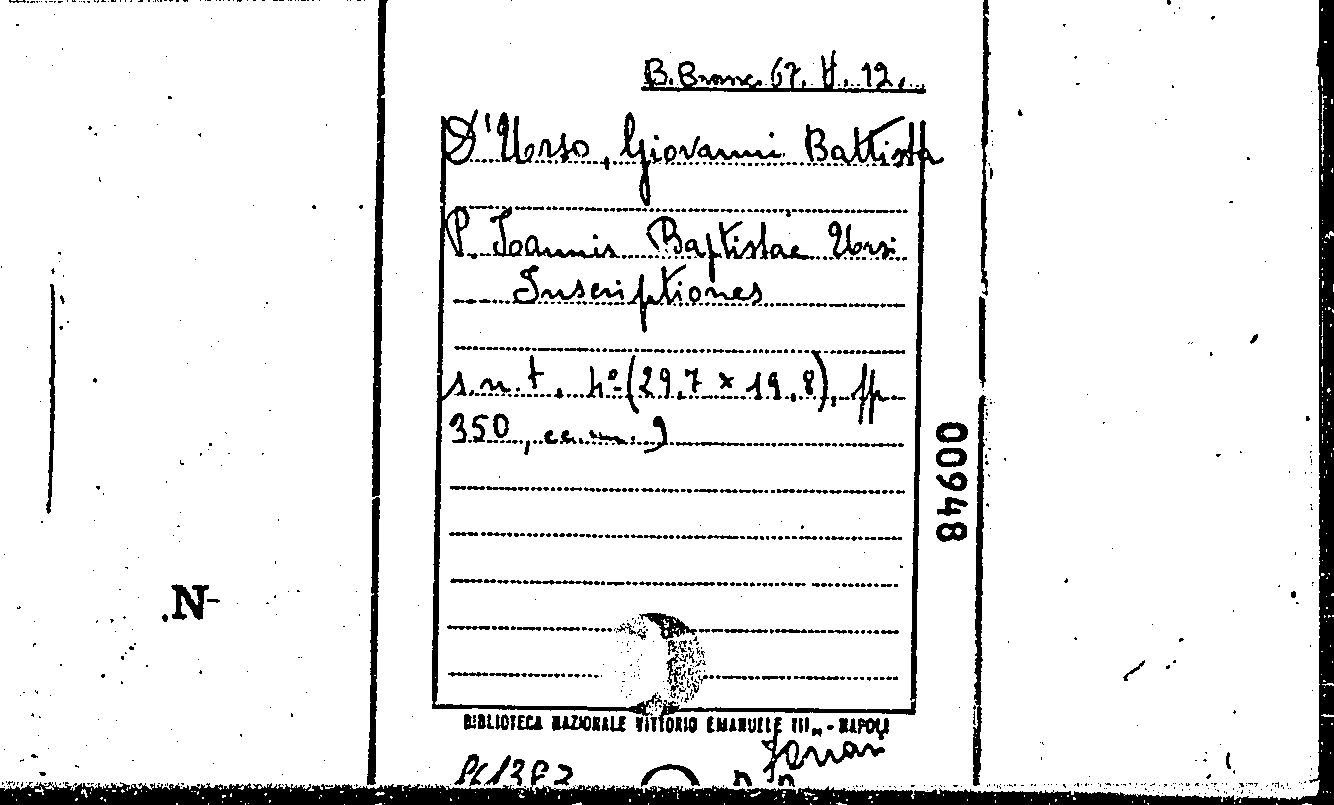 B. Branc. 67. H. 12.
D'Urso, Giovanni Battista
P. Joannis Baptistae Ursi
Inscriptiones
s.n.t., 4º (29,7 x 19,8), pp
350, cc.nn. 9
00948
.N-
BIBLIOTECA NAZIONALE VITTORIO EMANUELE III, - NAPOLI